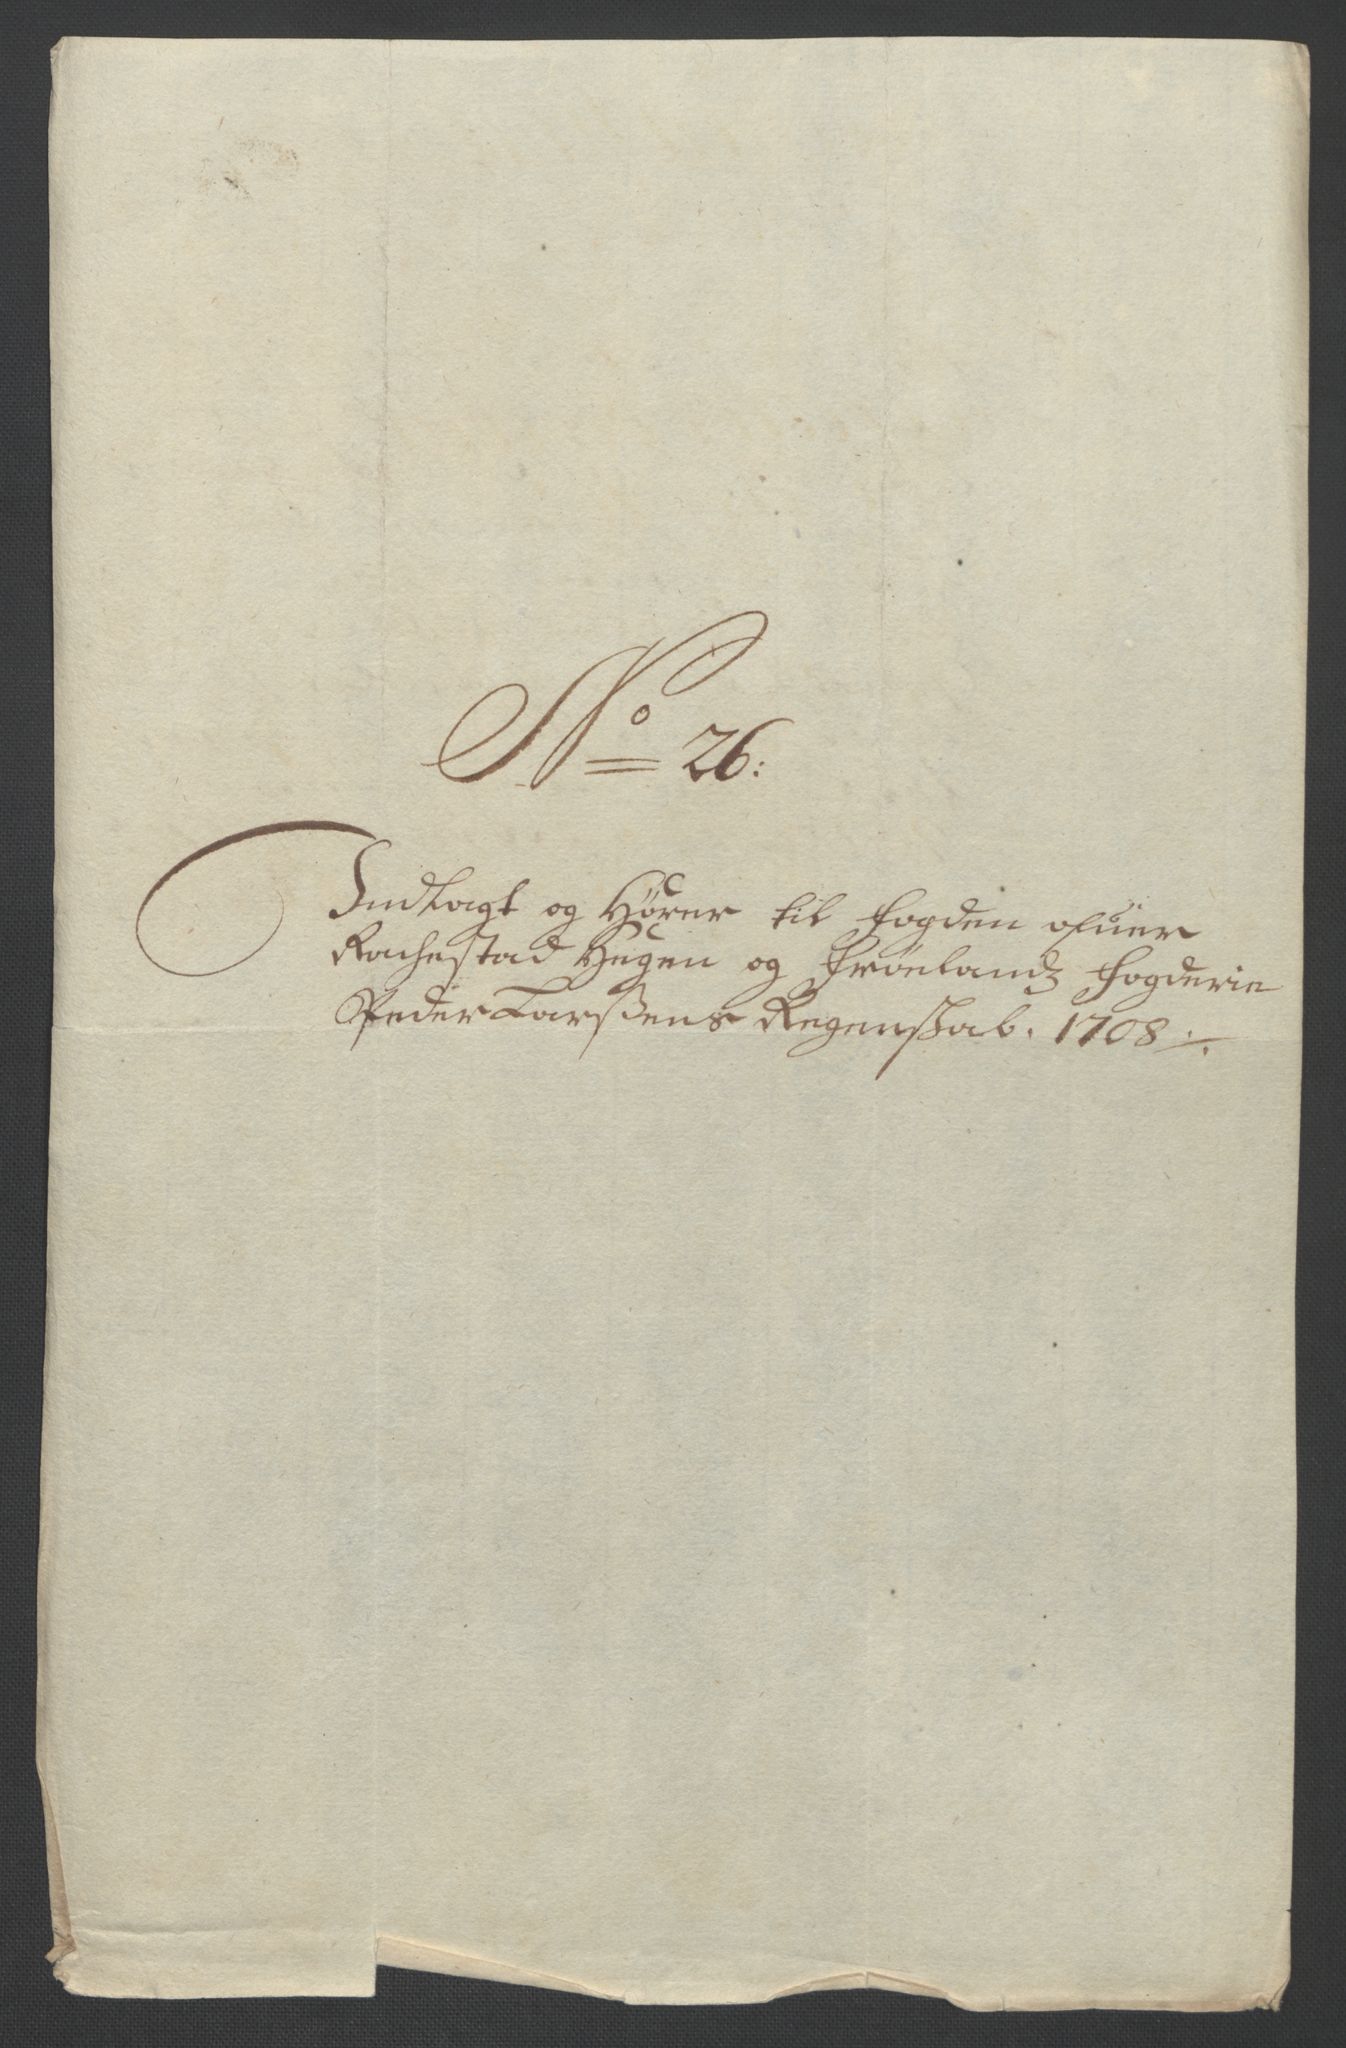 No 26:
Indlagt og Hører til fogden ofuer
Rachestad Hegen og frøelandz fogderie
Peder Larssens Regenskab. 1708 ./.